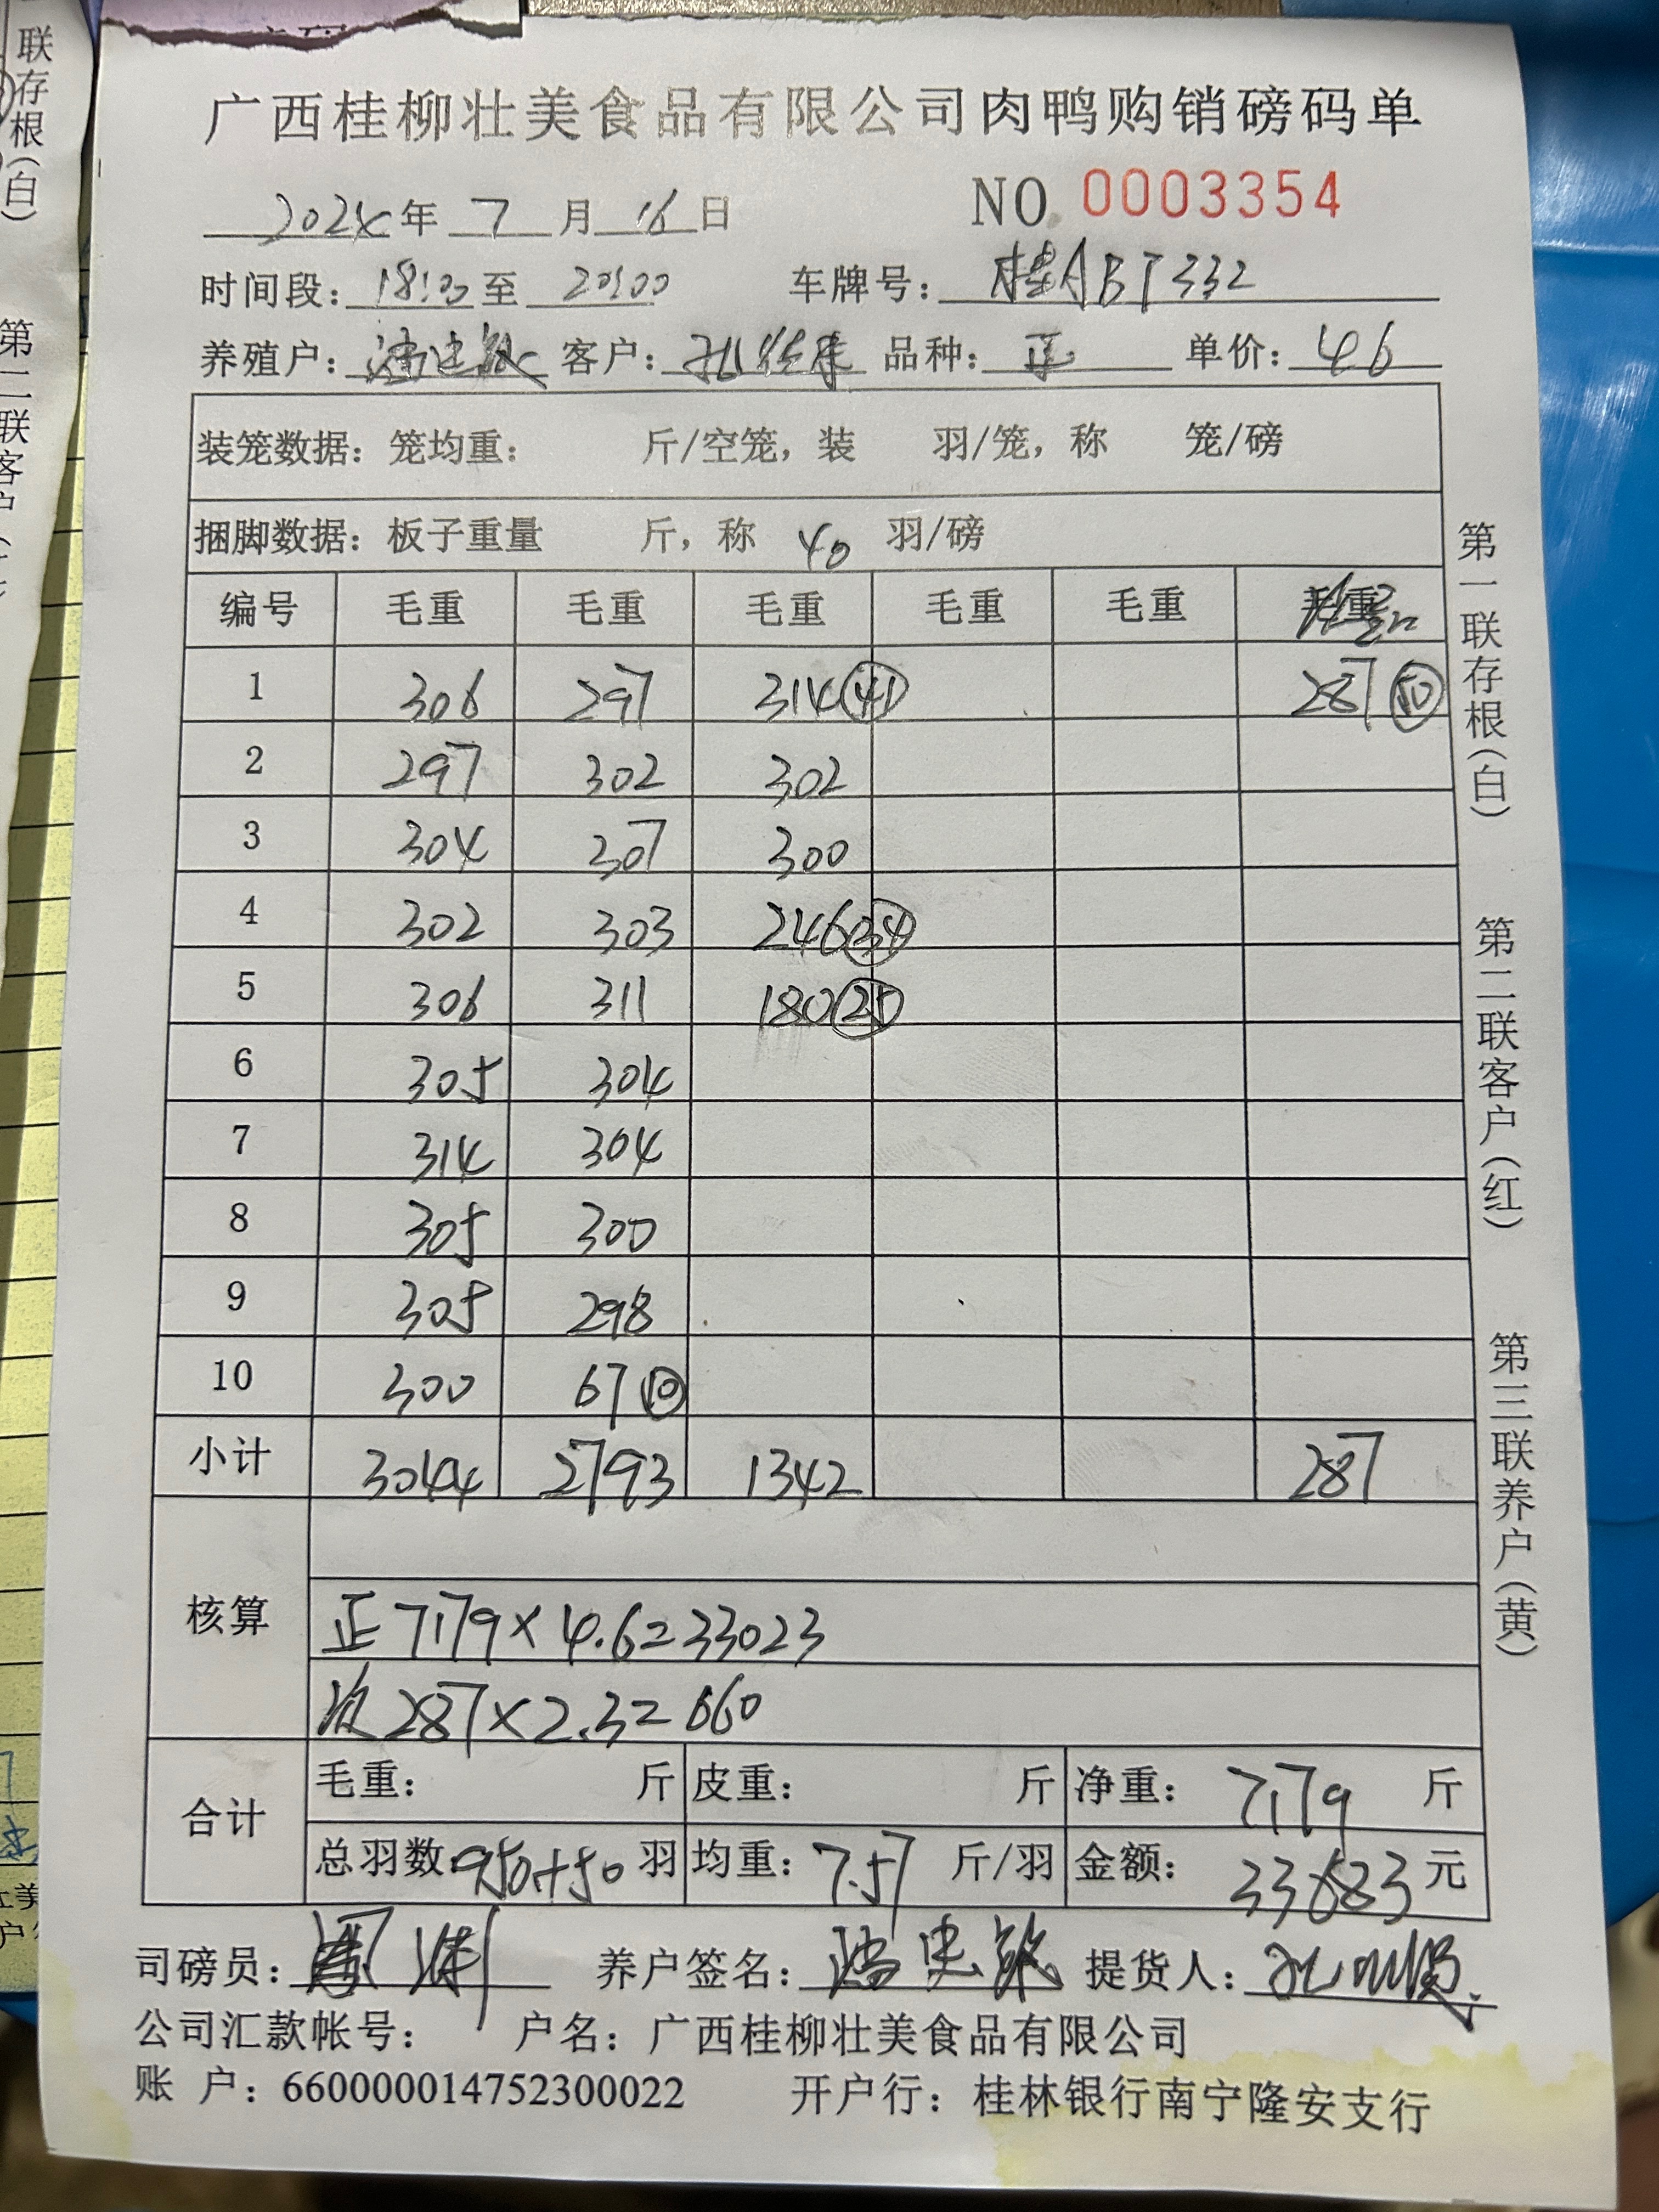 广西桂柳壮美食品有限公司肉鸭购销磅码单
2024年 7 月 16 日 NO. 0003354
时间段: 18:00 至 20:00 车牌号: 桂ABT332
养殖户: 客户: 品种: 正 单价: 4.6
装笼数据: 笼均重: 斤/空笼, 装 羽/笼, 称 笼/磅
捆脚数据: 板子重量 斤, 称 40 羽/磅
编号 毛重 毛重 毛重 毛重 毛重
1 306 297 314 (41) 287 (50)
2 297 302 302
3 304 307 300
4 302 303 246 (34)
5 306 311 180 (25)
6 305 304
7 314 304
8 305 300
9 305 298
10 300 67 (10)
小计 3044 2793 1342 287
核算
正 7179×4.6=33023
次 287×2.3=660
合计
毛重: 斤 皮重: 斤 净重: 7179 斤
总羽数: 950+50 羽 均重: 7.57 斤/羽 金额: 33683 元
司磅员: 养户签名: 提货人:
公司汇款帐号: 户名: 广西桂柳壮美食品有限公司
账 户: 660000014752300022 开户行: 桂林银行南宁隆安支行
第一联存根(白) 第二联客户(红) 第三联养户(黄)
联存根(白)
第二联客户